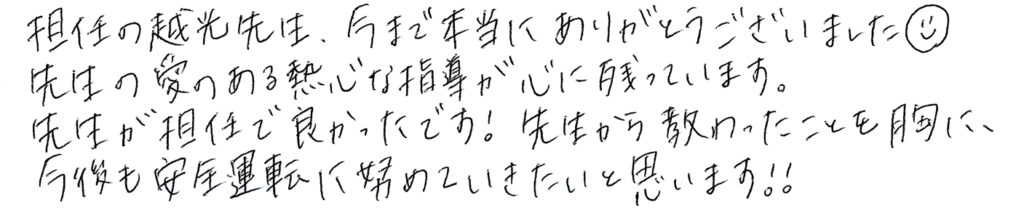 担任の越光先生、今まで本当にありがとうございました☺
先生の愛のある熱心な指導が心に残っています。
先生が担任で良かったです！先生から教わったことを胸に、
今後も安全運転に努めていきたいと思います!!